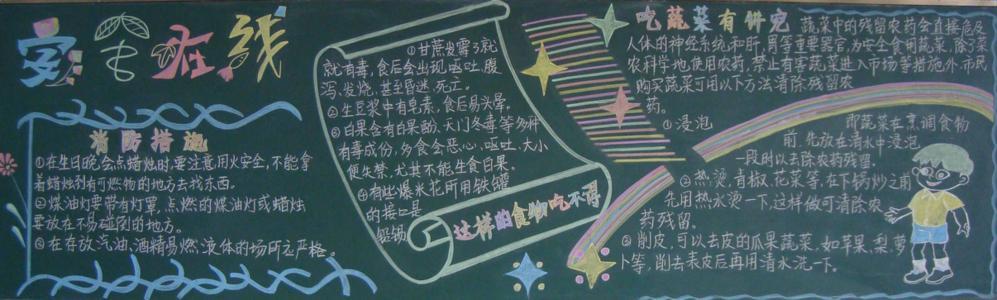 安全在线
消防措施
①在生日晚会点蜡烛时要注意用火安全,不能拿
着蜡烛到有可燃物的地方去找东西。
②煤油灯要带有灯罩,点燃的煤油灯或蜡烛
要放在不易碰到的地方。
③在存放汽油,酒精易燃液体的场所应严格。
①甘蔗发霉了就
就有毒,食后会出现呕吐.腹
泻.发烧.甚至昏迷.死亡。
②生豆浆中有皂素.食后易头晕。
③白果含有白果酚.天门冬毒等多种
有毒成份,多食会恶心.呕吐.大小
便失禁,尤其不能生食白果.
④有些爆米花所用铁罐
的接口是
铅锡
这样的食物吃不得
吃蔬菜有讲究
蔬菜中的残留农药会直接危及
人体的神经系统和肝,肾等重要器官,为安全食用蔬菜,除了菜
农科学地使用农药,禁止有害蔬菜进入市场等措施外,市民
购买蔬菜可用以下方法清除残留农
药。
①浸泡
即蔬菜在烹调食物
前,先放在清水中浸泡
一段时以去除农药残留.
②热烫,青椒,花菜等,在下锅炒之前
先用热水烫一下,这样做可清除农
药残留。
③削皮.可以去皮的瓜果蔬菜.如苹果,梨,萝
卜等,削去表皮后再用清水洗一下。